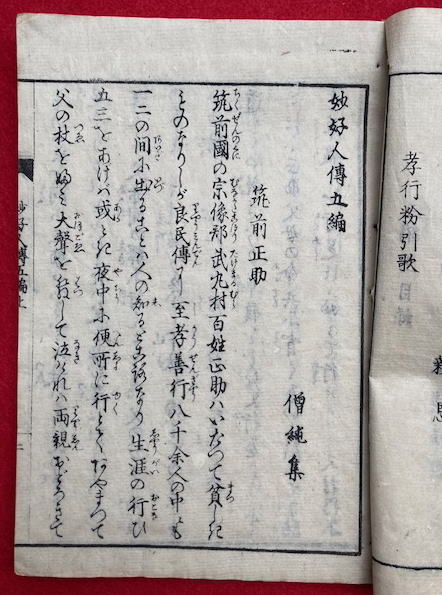 孝行粉引歌
妙好人傳五編
僧純集
筑前正助
筑前國の宗像郡武丸村百姓正助ハいたつて貧しき
ものなりしが良民傳に至孝善行八千余人の中にも
一二の間に出ることハ人の知るところなり生涯の行ひ
五三をあげハ或とき夜中に便所に行とてあやまつて
父の杖を踏ミ大聲を發して泣けれバ両親おどろきて
妙好人傳五編上